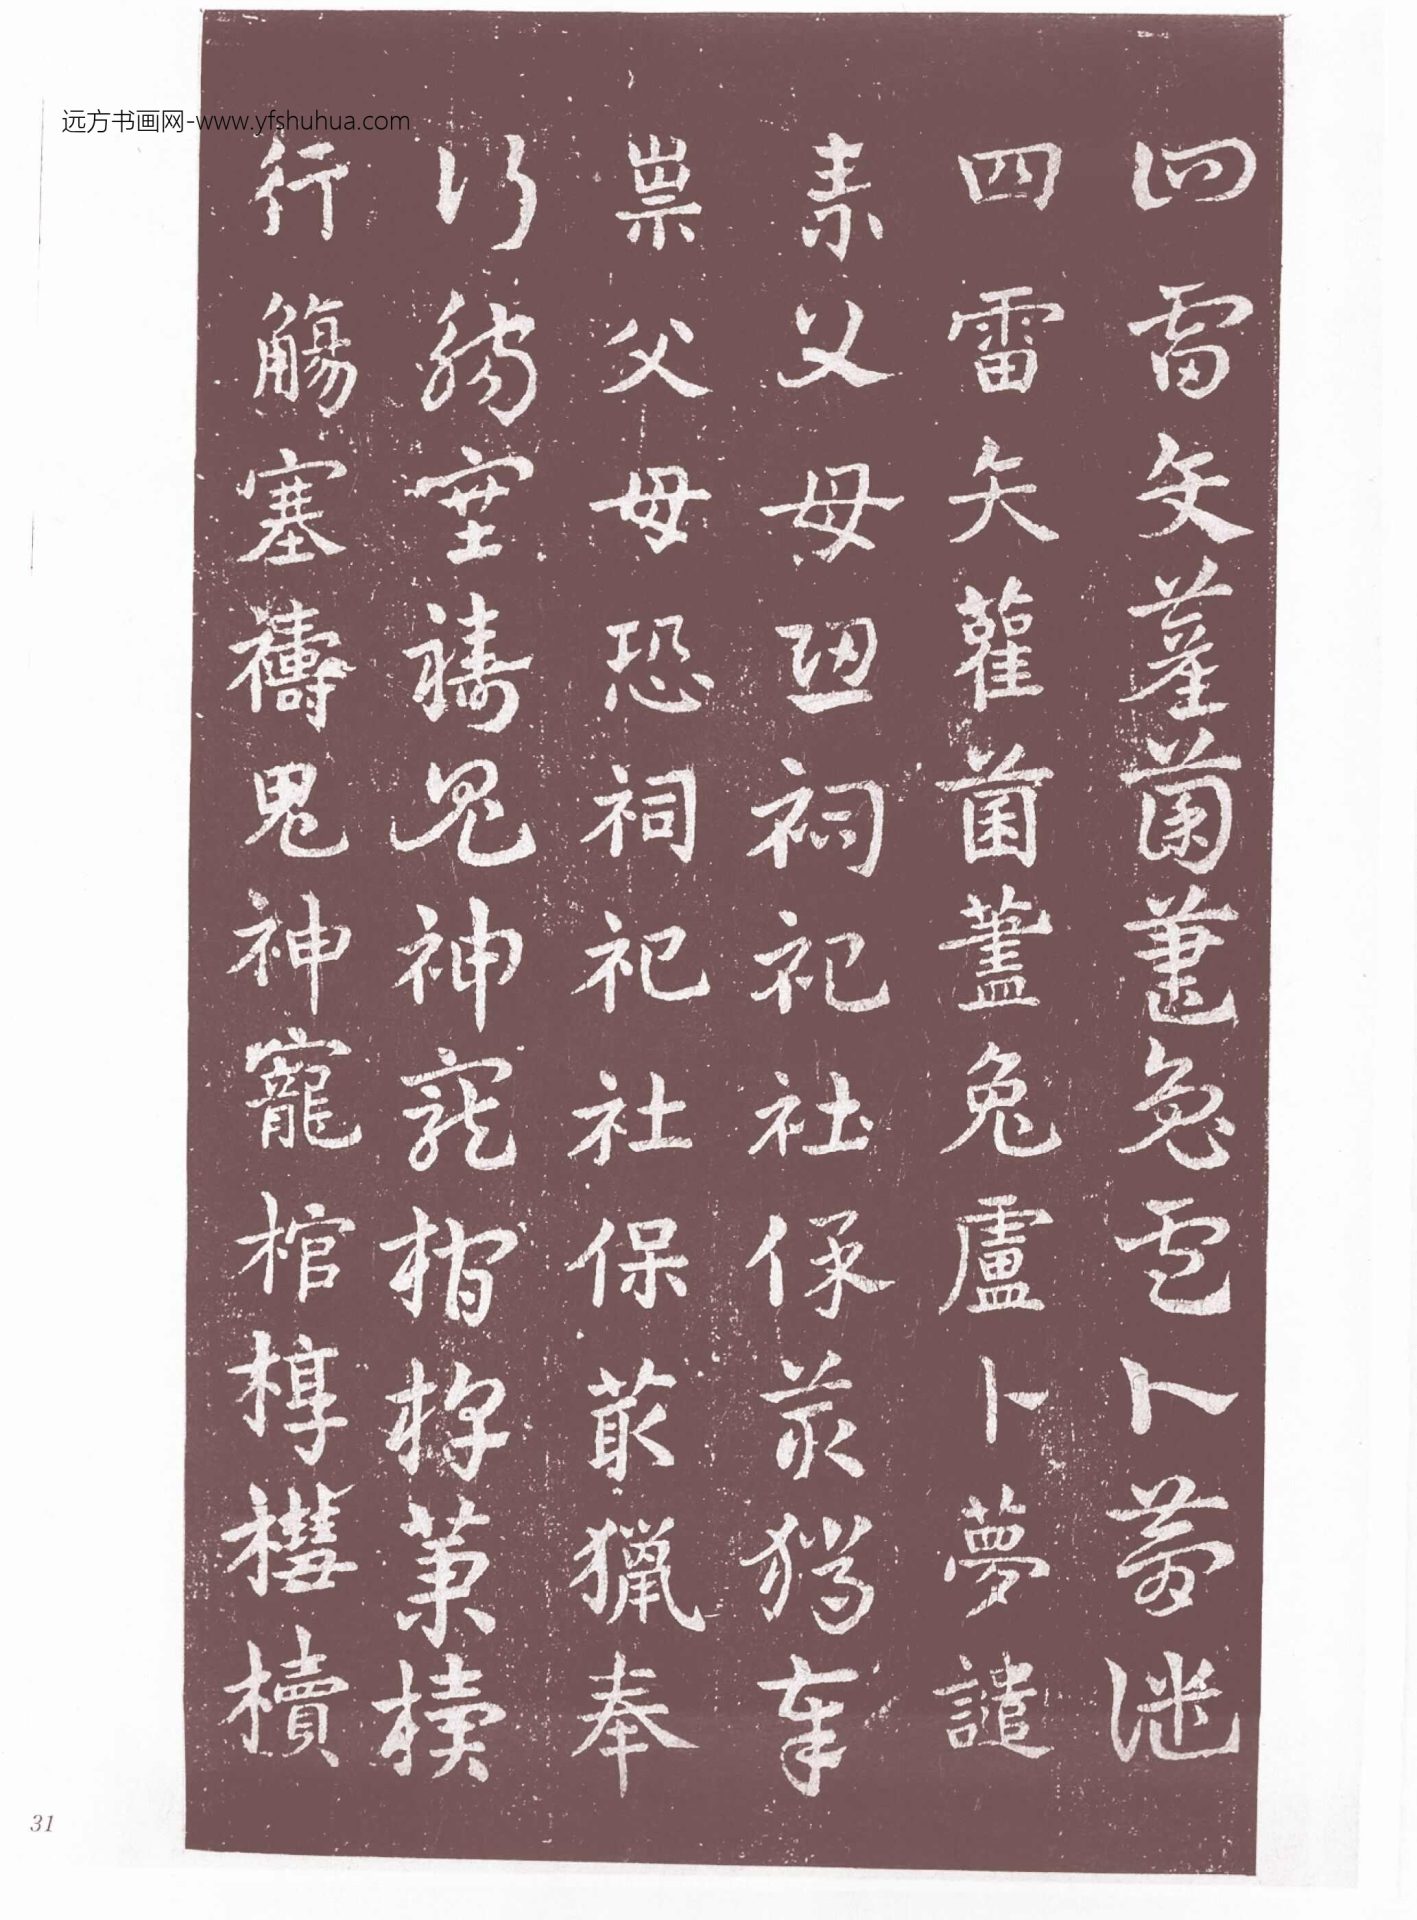 远方书画网-www.yfshuhua.com
四雷矢雚菌藎兔盧卜夢譴
四雷矢雚菌藎兔盧卜夢譴
祟父母恐祠祀社保叢獵奉
祟父母恐祠祀社保叢獵奉
行觴塞禱鬼神寵棺槨槥櫝
行觴塞禱鬼神寵棺槨槥櫝
31